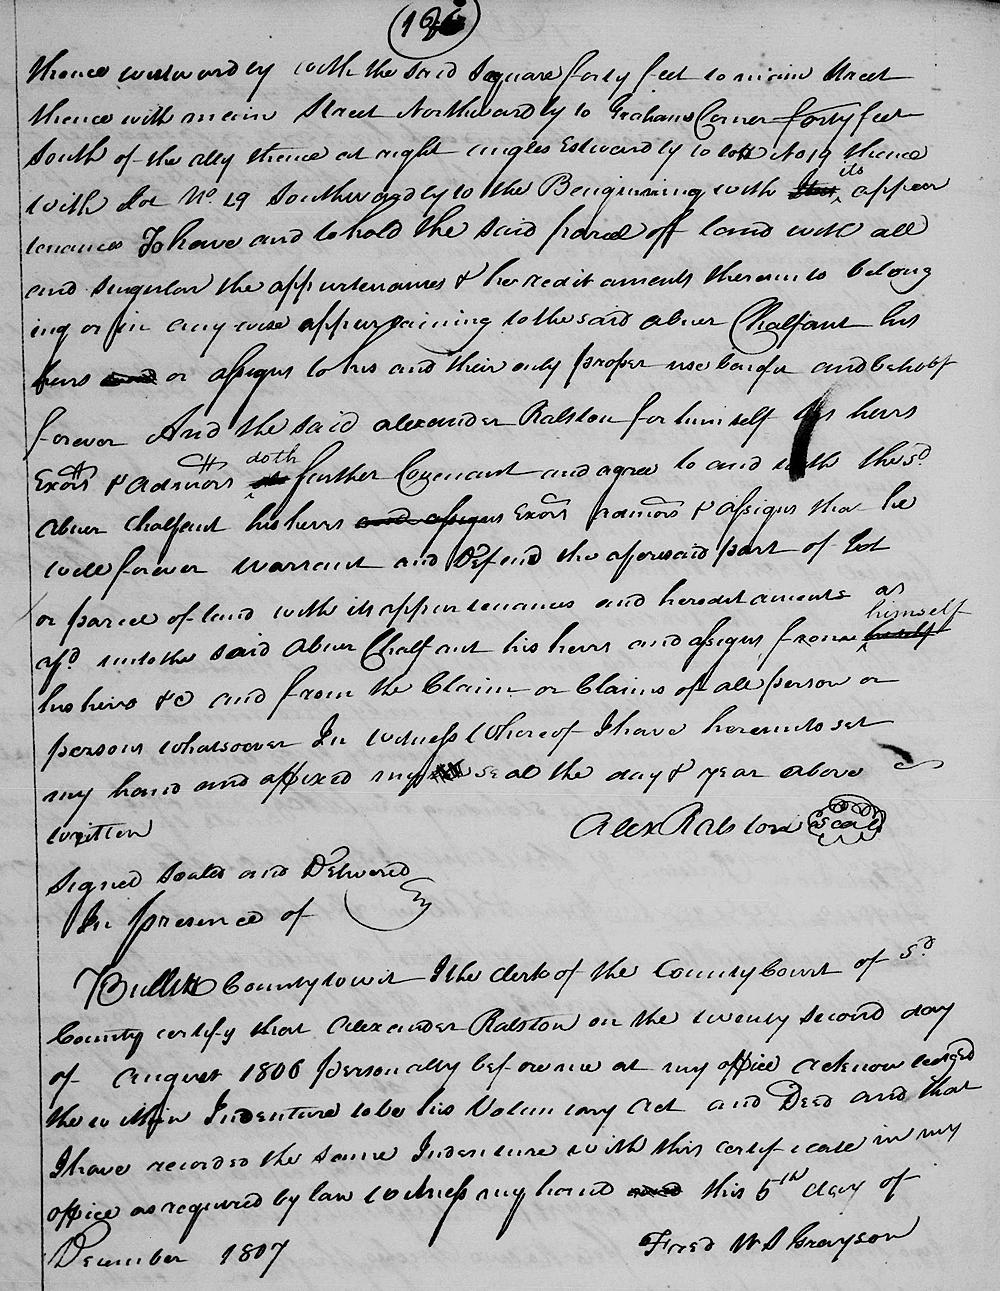 thence westwardly with the said square forty feet to main street
thence with main street Northwardly to Grahams Corner forty feet
South of the ally thence at right angles Estwardly to lott No 19 thence
with Lot No. 19 Southwardly to the Beginning with its appur
tenances To have and to hold the said parcel off land with all
and singular the appurtenances & heredit aments thereunto belong
ing or in any wise appurtaining to the said abner Chalfant his
heirs and or assigns to his and their only proper use benifit and behoof
forever And the said alexander Ralston for himself his heirs
Exors & Admors doth further Covenant and agree to and with the sd
abner Chalfant his heirs and assigns Exors admors & assigns that he
will forever warrant and Defend the aforesaid part of Lot
or parcel of land with its appurtenances and heredetaments as
afd unto the said Abner Chalfant his heirs and assigns from himself
his heirs &c and from the Claim or Claims of all person or
persons whatsoever In witness Whereof I have hereunto set
my hand and affixed my seal the day & year above
written Alex Ralston seal
Signed Sealed and Delivered
In presence of
Bullitt County towit I the clerk of the County Court of sd
County certify that Alexander Ralston on the twenty second day
of August 1806 personally before me at my office acknowledged
the within Indenture to be his Voluntary act and Deed and that
I have recorded the same Indenture with this certificate in my
office as required by law witness my hand this 5th day of
December 1807 Fred W S Grayson